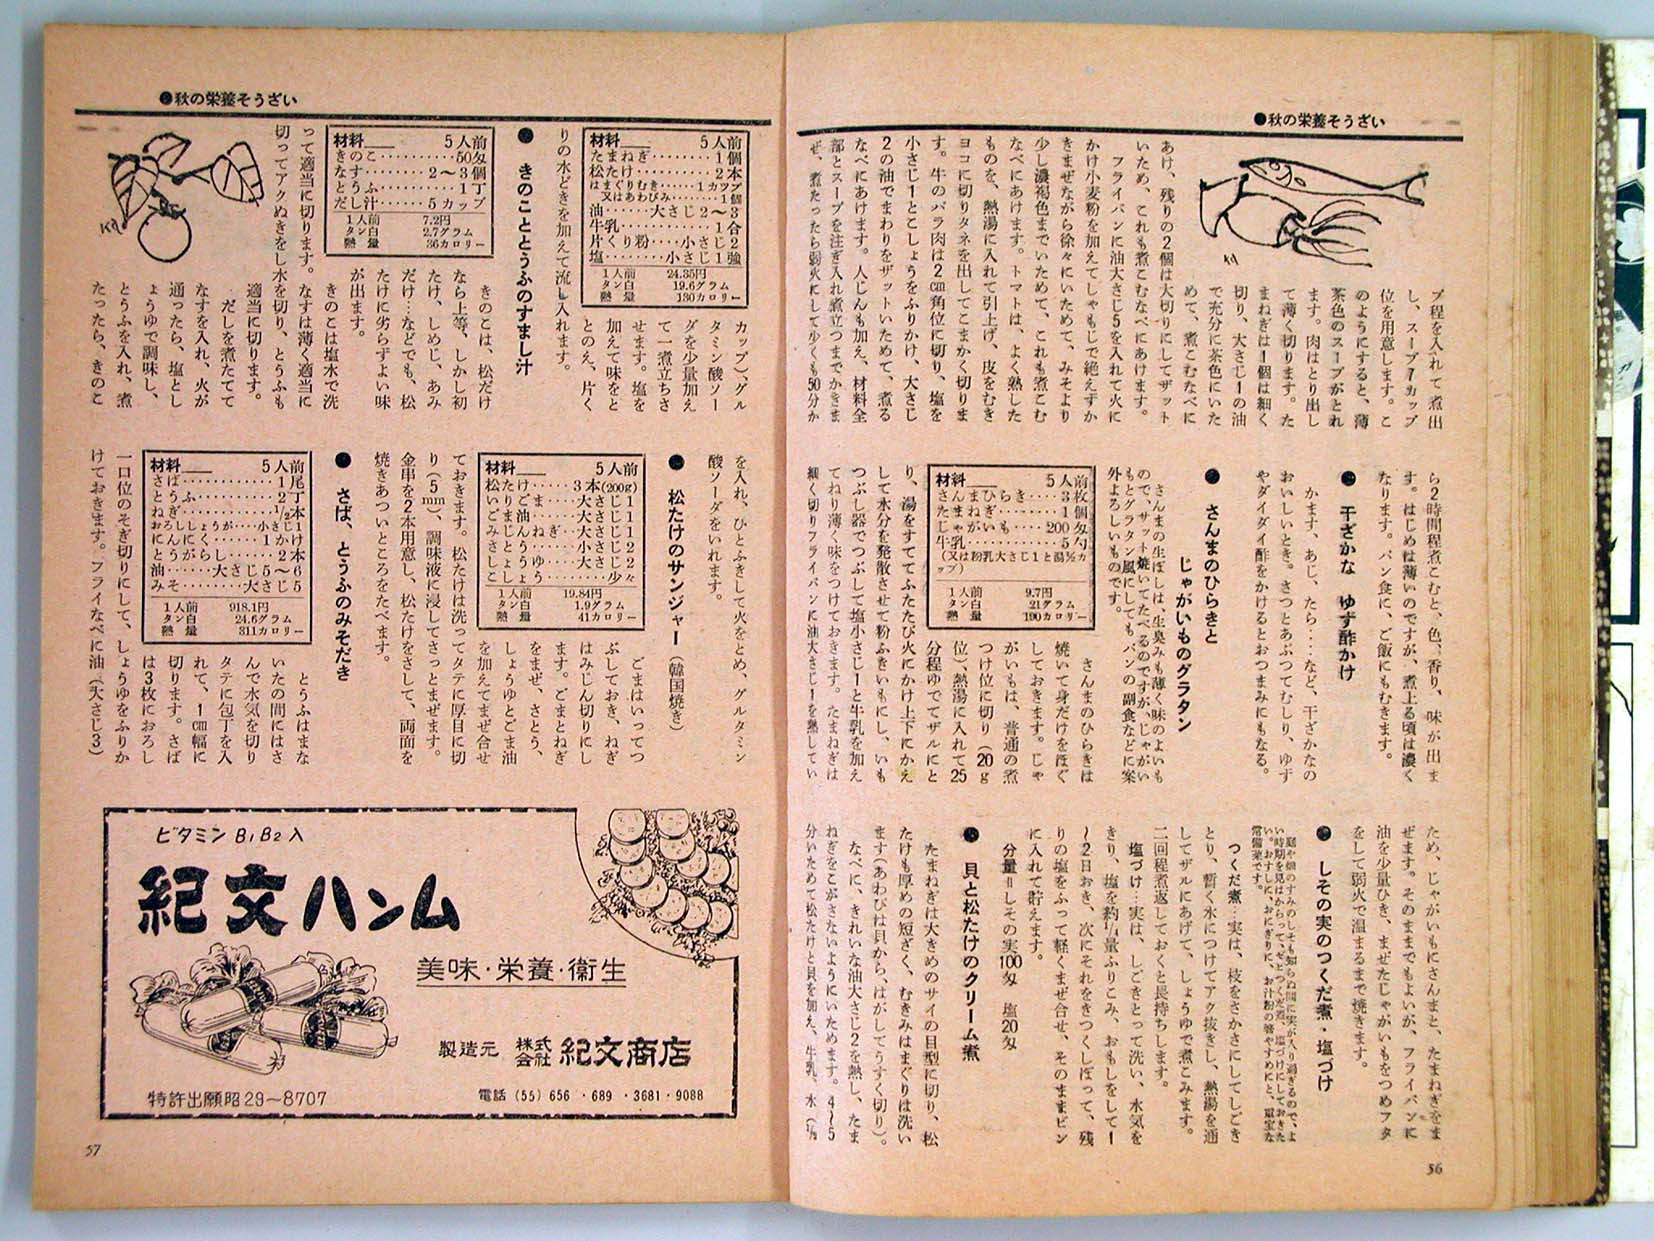 ●秋の栄養そうざい
プ程を入れて煮出
し、スープ7カップ
位を用意します。こ
のようにすると、薄
茶色のスープがとれ
ます。肉はとり出し
て薄く切ります。た
まねぎは1個は細く
切り、大さじ1の油
で充分に茶色にいた
めて、煮こむなべに
あけ、残りの2個は大切りにしてザット
いため、これも煮こむなべにあけます。
フライパンに油大さじ5を入れて火に
かけ小麦粉を加えてしゃもじで絶えずか
きまぜながら徐々にいためて、みそより
少し濃褐色までいためて、これも煮こむ
なべにあけます。トマトは、よく熟した
ものを、熱湯に入れて引上げ、皮をむき
ヨコに切りタネを出してこまかく切りま
す。牛のバラ肉は2cm角位に切り、塩を
小さじ1とこしょうをふりかけ、大さじ
2の油でまわりをザットいためて、煮る
なべにあけます。人じんも加え、材料全
部とスープを注ぎ入れ煮立つまでかきま
ぜ、煮たったら弱火にして少くも50分か
ら2時間程煮こむと、色、香り、味が出ま
す。はじめは薄いのですが、煮上る頃は濃く
なります。パン食に、ご飯にもむきます。
● 干ざかな ゆず酢かけ
かます、あじ、たら…など、干ざかなの
おいしいとき。さつとあぶつてむしり、ゆず
やダイダイ酢をかけるとおつまみにもなる。
● さんまのひらきと
じゃがいものグラタン
さんまの生ぼしは、生臭みも薄く味のよいも
ので、サット焼いてたべるのですが、じゃがい
もとグラタン風にしても、パンの副食などに案
外よろしいものです。
材料 5人前
さんまひらき……3枚
たまねぎ……1個
じゃがいも……200匁
牛乳……5勺
(又は粉乳大さじ1と湯½カ
ップ)
1人前 9.7円
タン白 21グラム
熱量 190カロリー
さんまのひらきは
焼いて身だけをほぐ
しておきます。じゃ
がいもは、普通の煮
つけ位に切り(20g
位)、熱湯に入れて25
分程ゆでてザルにと
り、湯をすててふたたび火にかけ上下にかえ
して水分を発散させて粉ふきいもにし、いも
つぶし器でつぶして塩小さじ1と牛乳を加え
てねり薄く味をつけておきます。たまねぎは
細く切りフライパンに油大さじ1を熱してい
ため、じゃがいもにさんまと、たまねぎをま
ぜます。そのままでもよいが、フライパンに
油を少量ひき、まぜたじゃがいもをつめフタ
をして弱火で温まるまで焼きます。
● しその実のつくだ煮・塩づけ
庭や畑のすみのしそも知らぬ間に実が入り過ぎるので、よ
い時期を見はからって、ぜひつくだ煮、塩づけにしておきた
い。おすしに、おにぎりに、お汁粉の箸やすめにと、重宝な
常備菜です。
つくだ煮…実は、枝をさかさにしてしごき
とり、暫く水につけてアク抜きし、熱湯を通
してザルにあげて、しょうゆで煮こみます。
二回程煮返しておくと長持ちします。
塩づけ…実は、しごきとって洗い、水気を
きり、塩を約¼量ふりこみ、おもしをして1
〜2日おき、次にそれをきつくしぼって、残
りの塩をふって軽くまぜ合せ、そのままビン
に入れて貯えます。
分量=しその実100匁 塩20匁
● 貝と松たけのクリーム煮
たまねぎは大きめのサイの目型に切り、松
たけも厚めの短ざく、むきみはまぐりは洗い
ます(あわびは貝から、はがしてうすく切り)。
なべに、きれいな油大さじ2を熱し、たま
ねぎをこがさないようにいためます。4〜5
分いためて松たけと貝を加え、牛乳、水(⅓
56
●秋の栄養そうざい
材料 5人前
たまねぎ……1個
松たけ……2本
はまぐりむきみ……1カップ
又はあわびみ……1個
油……大さじ2〜3
牛乳……1合
片くり粉……小さじ2
塩……小さじ1強
1人前 24.35円
タン白 19.6グラム
熱量 130カロリー
カップ)、グル
タミン酸ソー
ダを少量加え
て一煮立ちさ
せます。塩を
加えて味をと
とのえ、片く
りの水どきを加えて流し入れます。
● きのことうふのすまし汁
材料 5人前
きのこ……50匁
なす……2〜3個
とうふ……1丁
だし汁……5カップ
1人前 7.2円
タン白 2.7グラム
熱量 36カロリー
きのこは、松だけ
なら上等、しかし初
たけ、しめじ、あみ
だけ…などでも、松
たけに劣らずよい味
が出ます。
きのこは塩水で洗
って適当に切ります。なすは薄く適当に
切ってアクぬきをし水を切り、とうふも
適当に切ります。
だしを煮たてて
なすを入れ、火が
通ったら、塩とし
ょうゆで調味し、
とうふを入れ、煮
たったら、きのこ
を入れ、ひとふきして火をとめ、グルタミン
酸ソーダをいれます。
● 松たけのサンジャー(韓国焼き)
材料 5人前
松たけ……3本(200g)
いりごま……大さじ1
ごま油……大さじ1
みじんねぎ……大さじ1
さとう……小さじ2
しょうゆ……大さじ2
こしょう……少々
1人前 19.84円
タン白 1.9グラム
熱量 41カロリー
ごまはいってつ
ぶしておき、ねぎ
はみじん切りにし
ます。ごまとねぎ
をまぜ、さとう、
しょうゆとごま油
を加えてまぜ合せ
ておきます。松たけは洗ってタテに厚目に切
り(5mm)、調味液に浸してさっとまぜます。
金串を2本用意し、松たけをさして、両面を
焼きあついところをたべます。
● さば、とうふのみそだき
材料 5人前
さば……1尾
とうふ……2丁
ねぎ……½本
おろししょうが……小さじ1
にんにく……1かけ
とうがらし……2〜6本
油……大さじ5
みそ……大さじ5
1人前 918.1円
タン白 24.6グラム
熱量 311カロリー
とうふはまな
いたの間にはさ
んで水気を切り
タテに包丁を入
れて、1cm幅に
切ります。さば
は3枚におろし
一口位のそぎ切りにして、しょうゆをふりか
けておきます。フライなべに油(大さじ3)
ビタミンB₁B₂入
紀文ハンム
美味・栄養・衞生
製造元 株式会社 紀文商店
特許出願昭29〜8707
電話(55)656・689・3681・9088
57